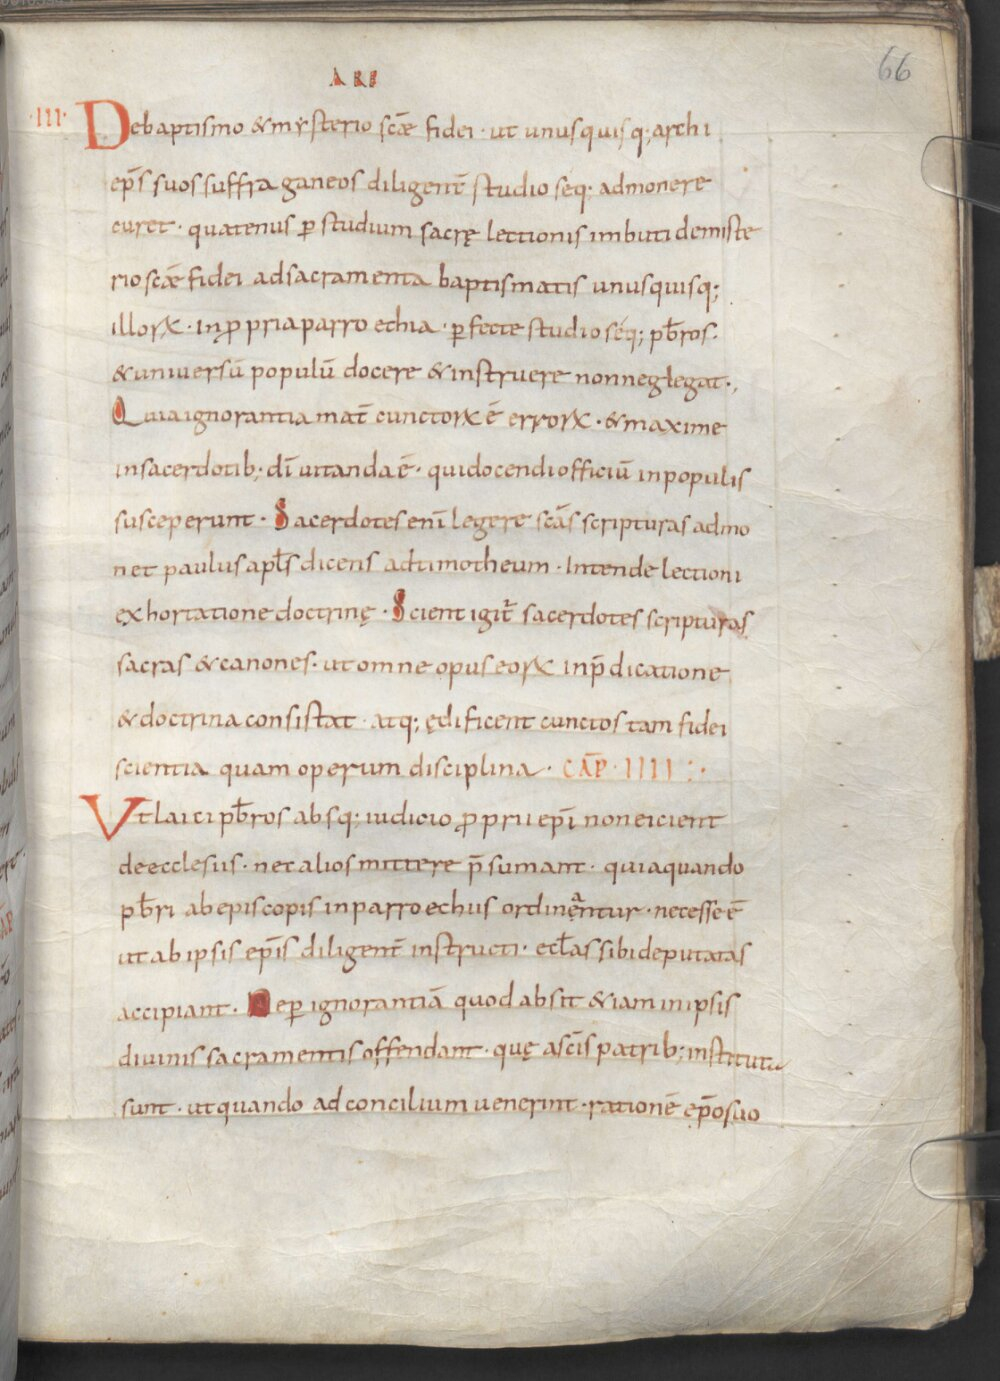 ARI
66
·III· De baptismo & mysterio scǣ fidei · ut unusquisq; archi
ep̄s suos suffraganeos diligent̄ studioseq; admonere
curet · quatenus ꝑ studium sacrę lectionis imbuti de miste
rio scǣ fidei ad sacramenta baptismatis unusquisq;
illoꝝ · in ꝓpria parroechia · ꝑfecte studioseq; pb̄ros ·
& universū populū docere & instruere non neglegat ·,
Quia ignorantia mat̄ cunctoꝝ ē erroꝝ · & maxime
in sacerdotib; dī vitanda ē · qui docendi officiū in populis
susceperunt · Sacerdotes enī legere scās scripturas admo
net paulus apl̄s dicens ad timotheum · Intende lectioni
exhortatione doctrinę · Scient igit̄ sacerdotes scripturas
sacras & canones · ut omne opus eoꝝ in p̄dicatione
& doctrina consistat · atq; ędificent cunctos tam fidei
scientia quam operum disciplina · CAP̄ · IIII :·
Ut laici pb̄ros absq; iudicio ꝓprii ep̄i non eicient
de ecclesiis · nec alios mittere p̄sumant · quia quando
pb̄ri ab episcopis in parroechiis ordinęantur · necesse ē
ut ab ipsis ep̄is diligent̄ instructi · eccl̄as sibi deputatas
accipiant · Ne ꝑ ignorantiā quod absit & iam in ipsis
divinis sacramentis offendant · quę a scīs patrib; instituta
sunt · ut quando ad concilium venerint · rationē ep̄o suo